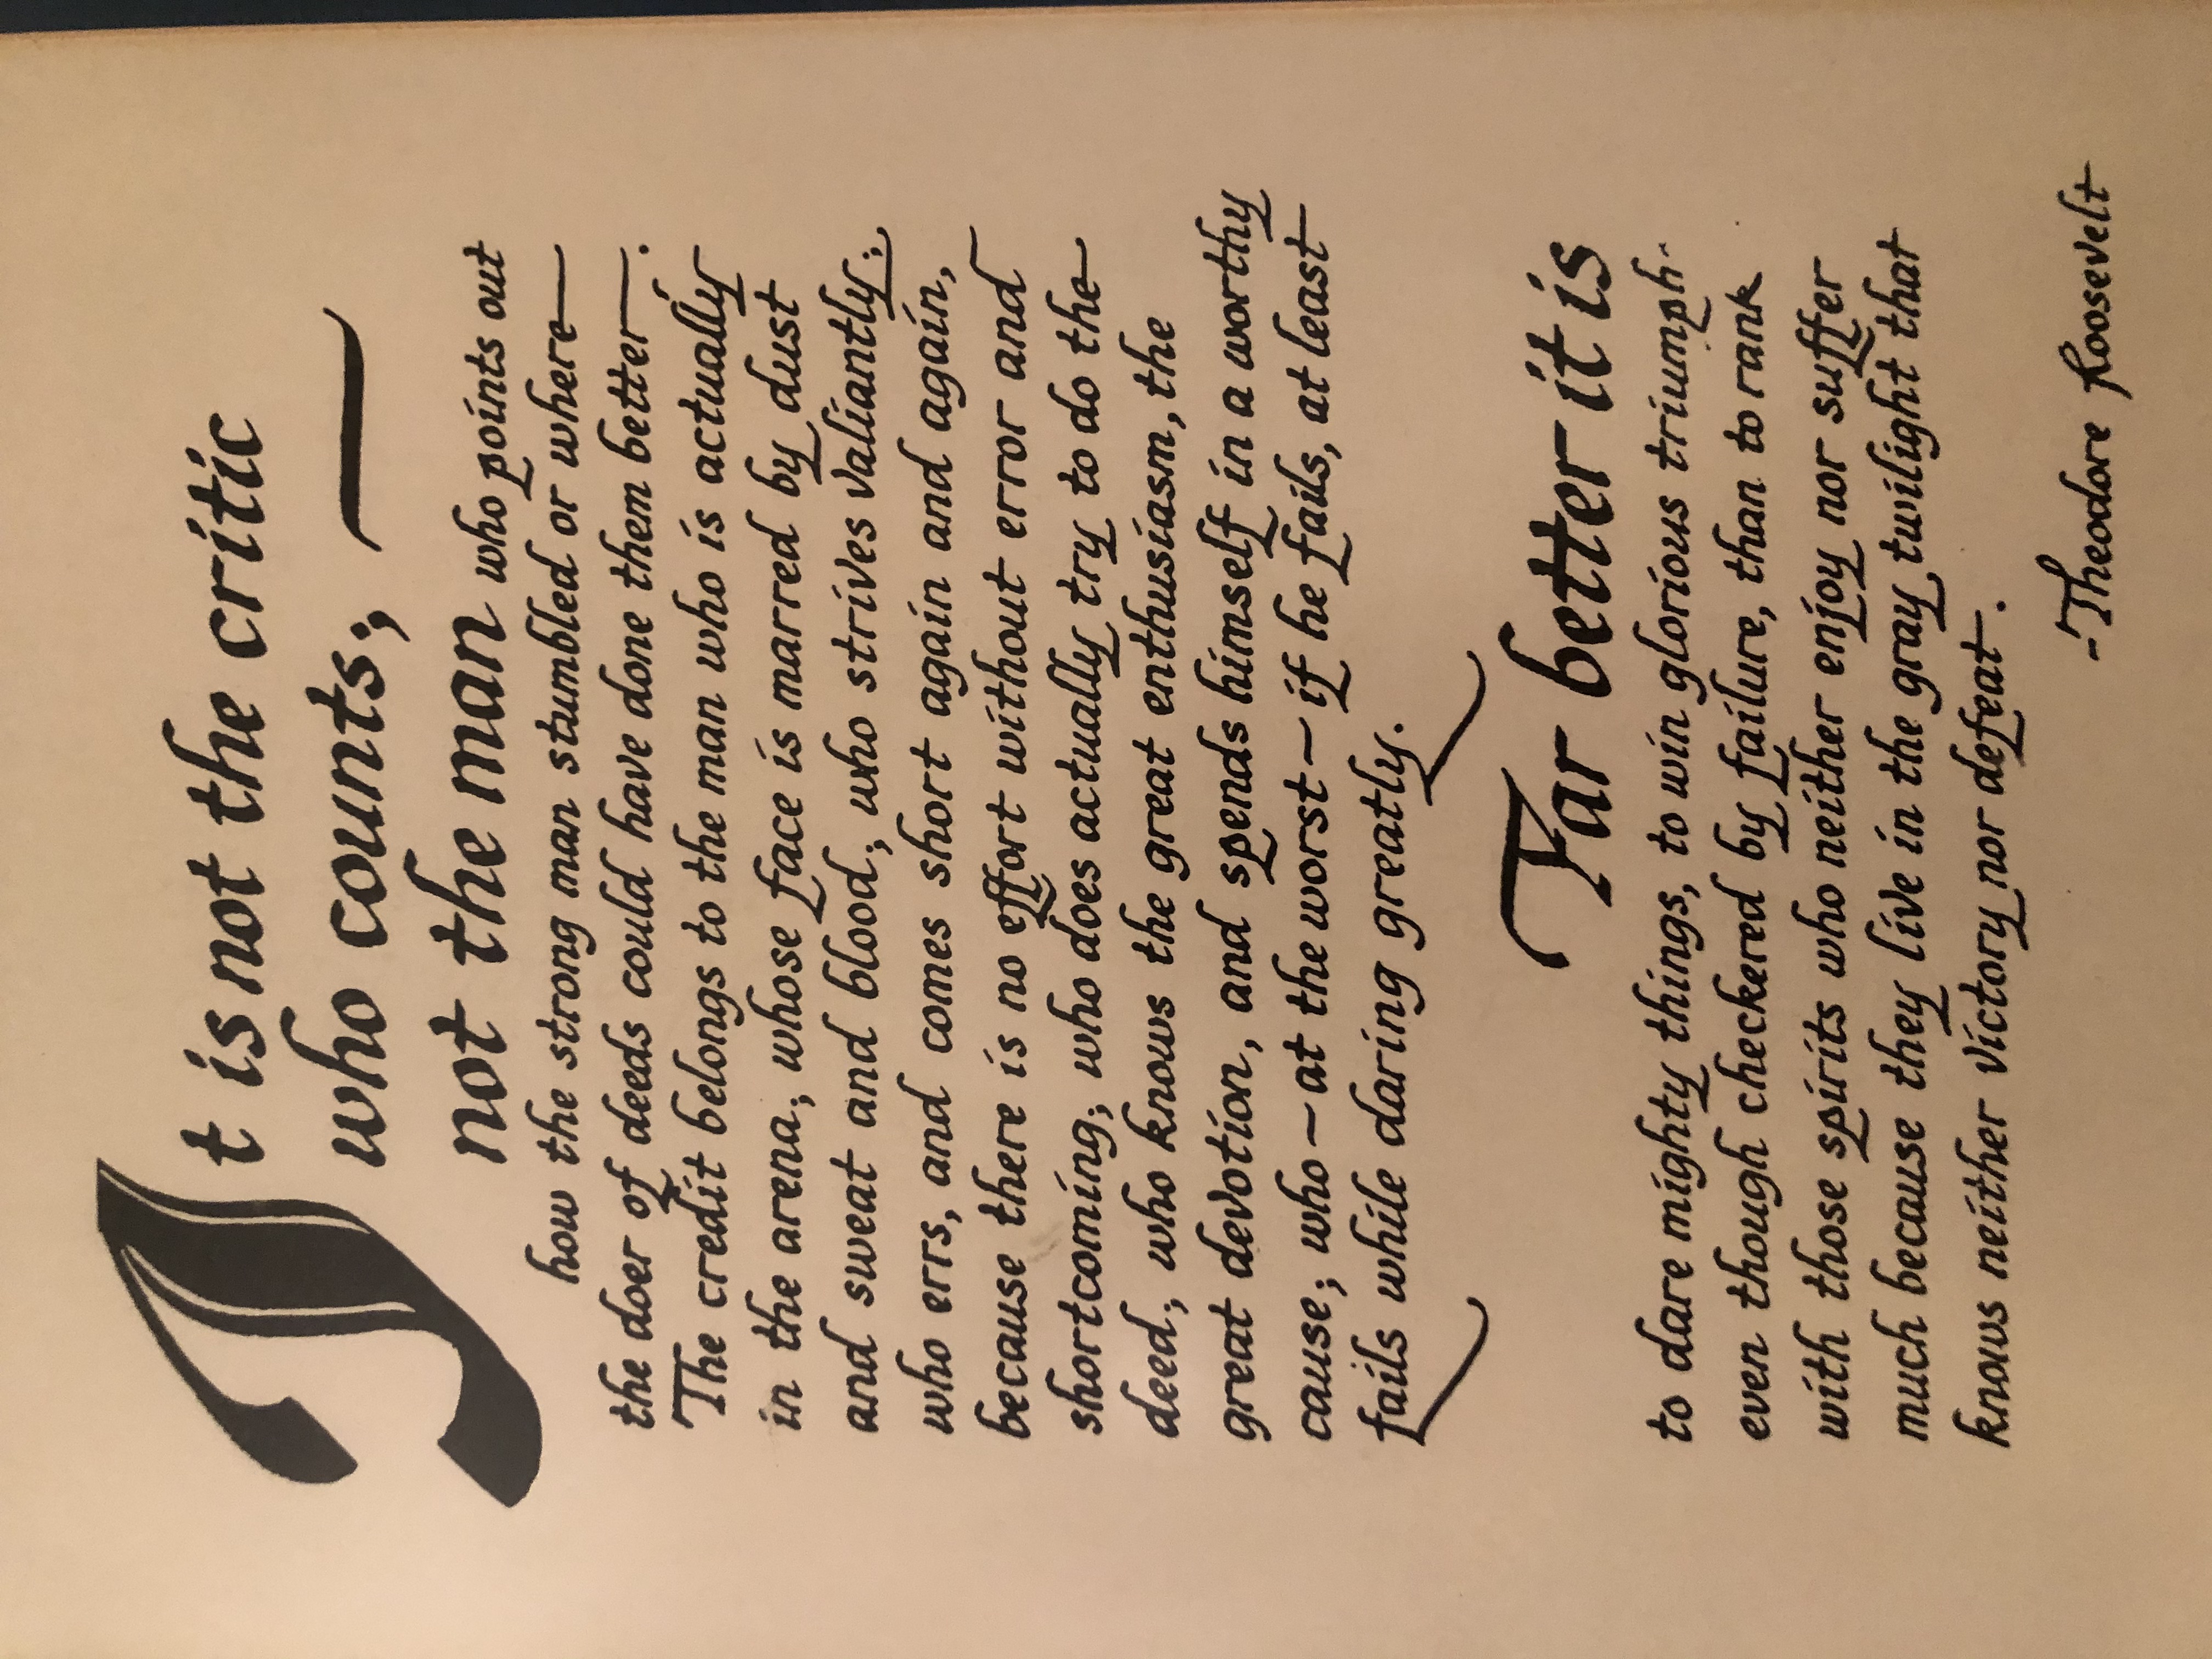 It is not the critic
who counts;
not the man who points out
how the strong man stumbled or where
the doer of deeds could have done them better.
The credit belongs to the man who is actually
in the arena; whose face is marred by dust
and sweat and blood; who strives valiantly;
who errs, and comes short again and again,
because there is no effort without error and
shortcoming; who does actually try to do the
deed; who knows the great enthusiasm, the
great devotion, and spends himself in a worthy
cause; who – at the worst – if he fails, at least
fails while daring greatly.
Far better it is
to dare mighty things, to win glorious triumph.
even though checkered by failure, than to rank
with those spirits who neither enjoy nor suffer
much because they live in the gray twilight that
knows neither victory nor defeat.
-Theodore Roosevelt